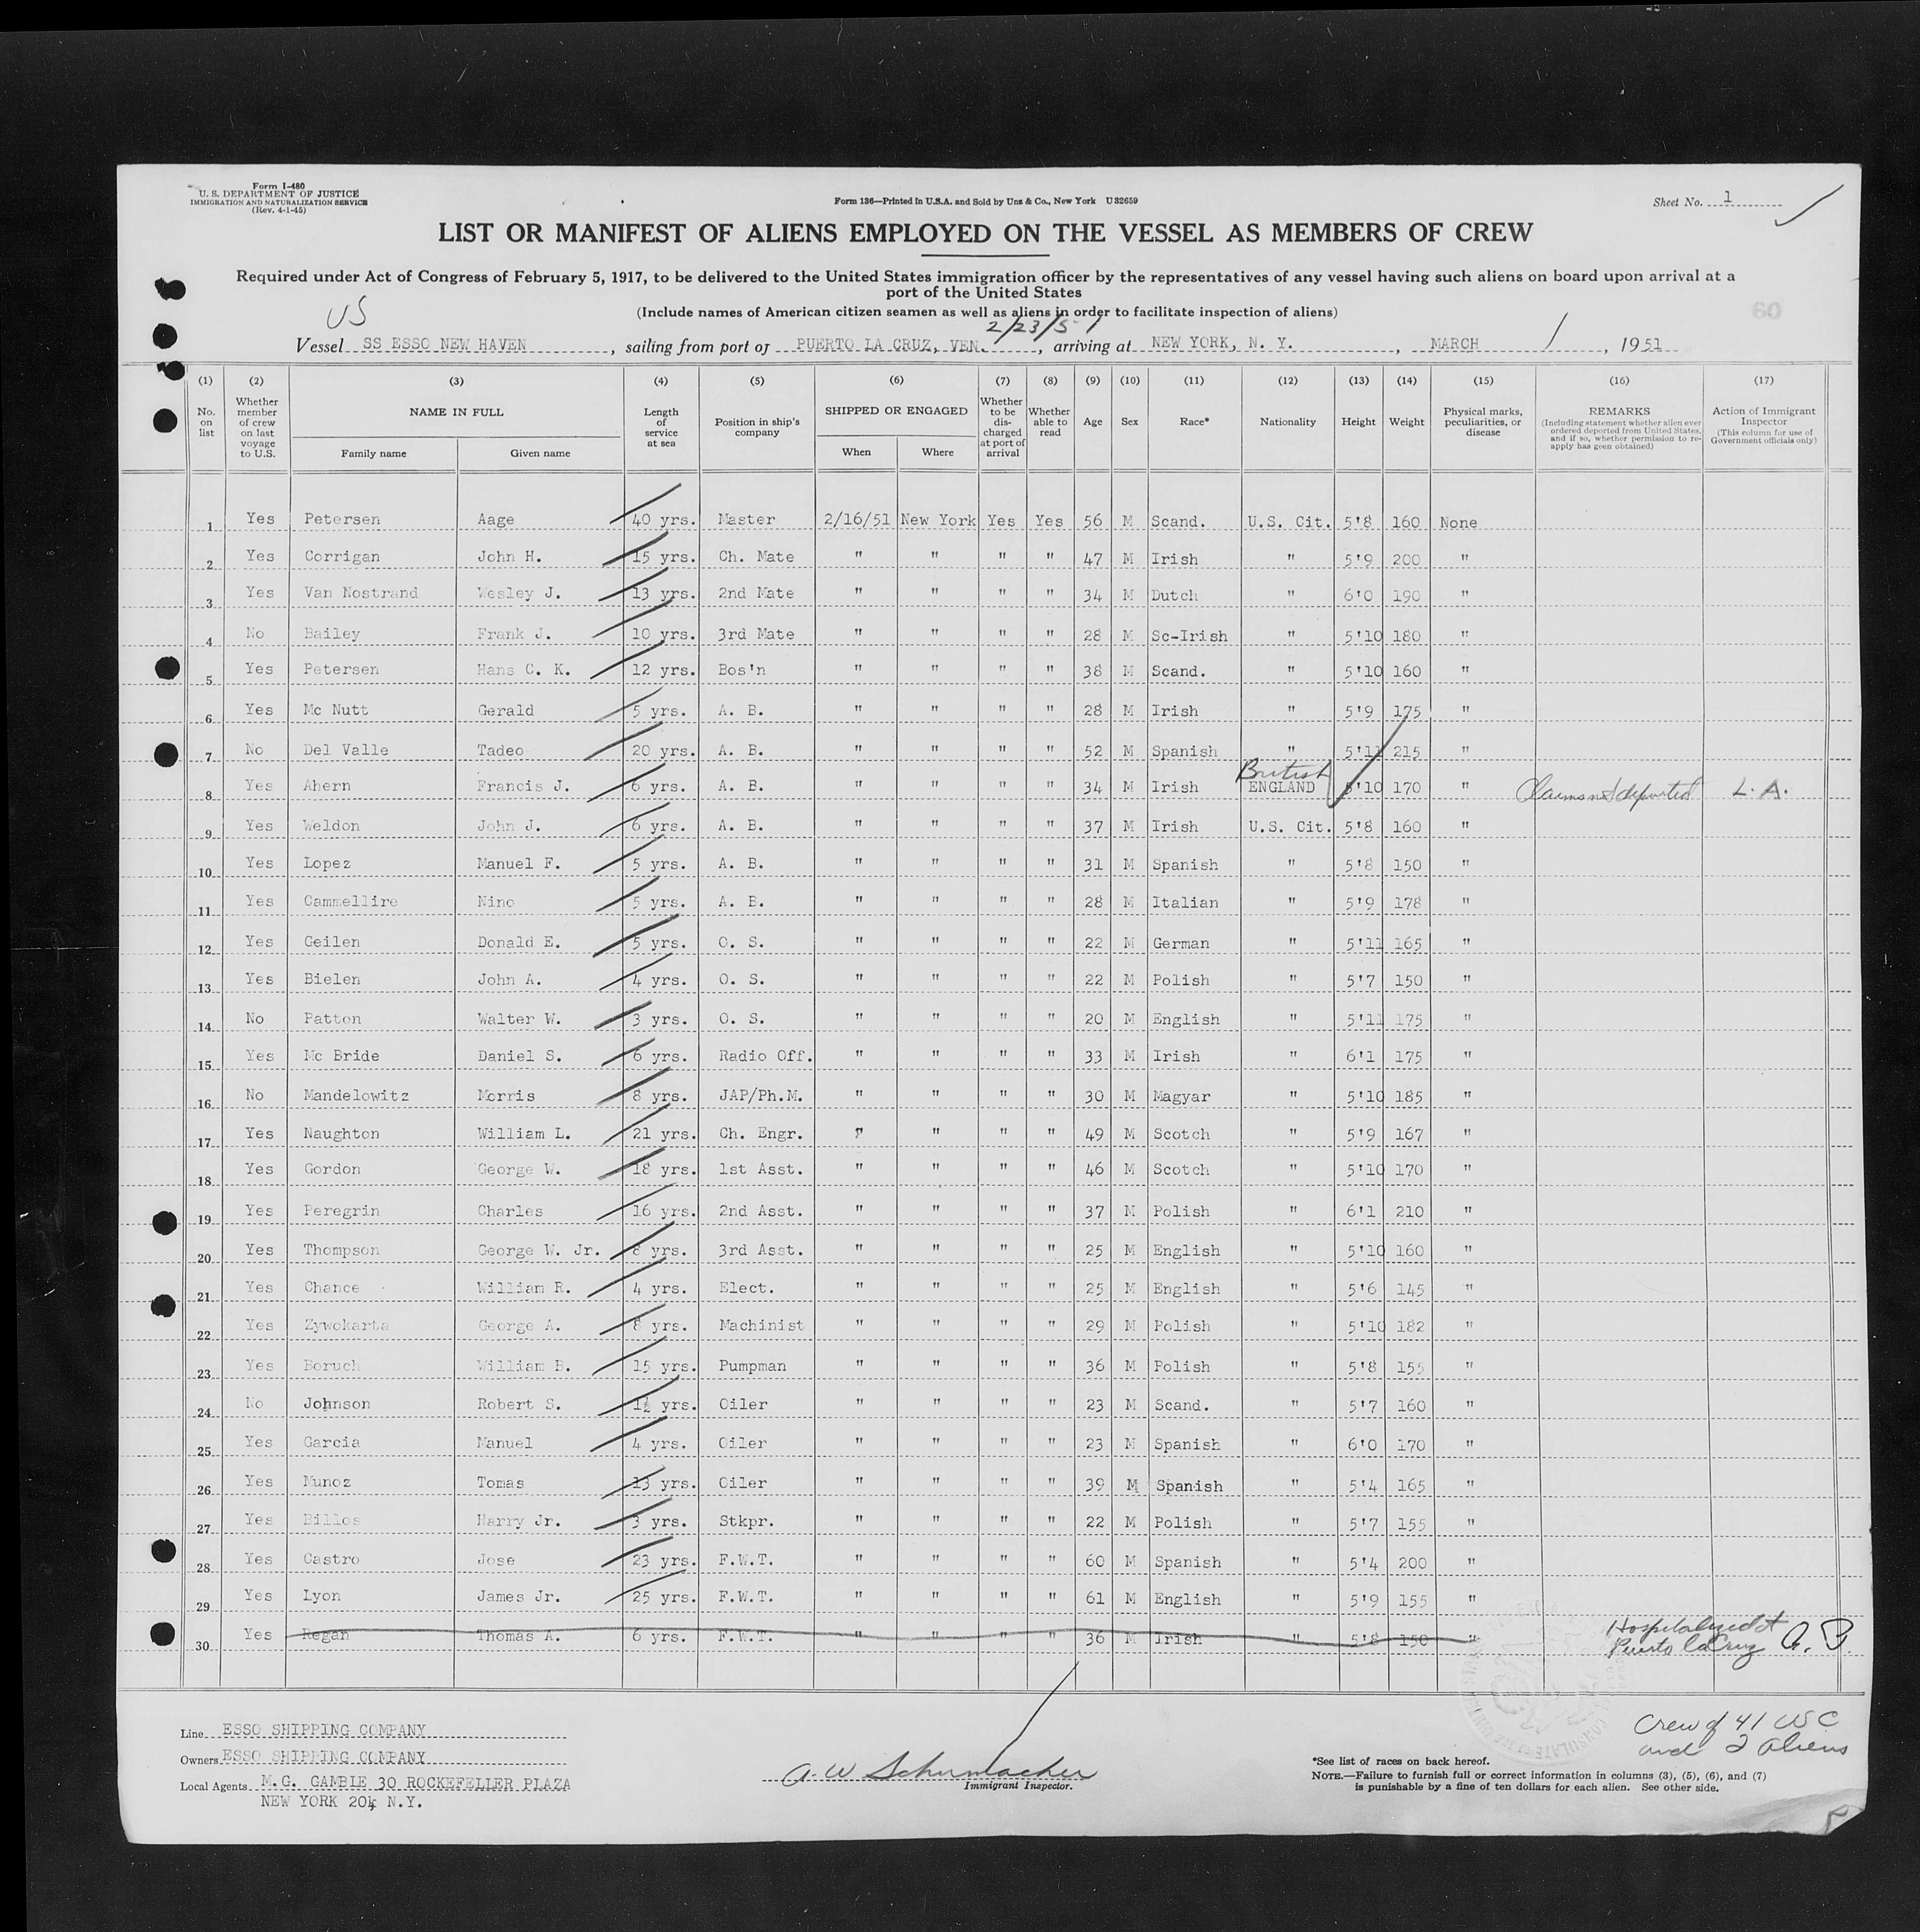 Form I-480
U. S. DEPARTMENT OF JUSTICE
IMMIGRATION AND NATURALIZATION SERVICE
(Rev. 4-1-45)
Form 136—Printed in U.S.A. and Sold by Unz & Co., New York U 32659
Sheet No. 1
LIST OR MANIFEST OF ALIENS EMPLOYED ON THE VESSEL AS MEMBERS OF CREW
Required under Act of Congress of February 5, 1917, to be delivered to the United States immigration officer by the representatives of any vessel having such aliens on board upon arrival at a
port of the United States
(Include names of American citizen seamen as well as aliens in order to facilitate inspection of aliens)
60
US
2/23/51
Vessel SS ESSO NEW HAVEN, sailing from port of PUERTO LA CRUZ, VEN., arriving at NEW YORK, N. Y., MARCH 1, 1951
(1) No. on list (2) Whether member of crew on last voyage to U.S. (3) NAME IN FULL Family name Given name (4) Length of service at sea (5) Position in ship's company (6) SHIPPED OR ENGAGED When Where (7) Whether to be discharged at port of arrival (8) Whether able to read (9) Age (10) Sex (11) Race* (12) Nationality (13) Height (14) Weight (15) Physical marks, peculiarities, or disease (16) REMARKS (Including statement whether alien ever ordered deported from United States, and if so, whether permission to re-apply has geen obtained) (17) Action of Immigrant Inspector (This column for use of Government officials only)
1 Yes Petersen Aage 40 yrs. Master 2/16/51 New York Yes Yes 56 M Scand. U.S. Cit. 5'8 160 None
2 Yes Corrigan John H. 15 yrs. Ch. Mate " " " " 47 M Irish " 5'9 200 "
3 Yes Van Nostrand Wesley J. 13 yrs. 2nd Mate " " " " 34 M Dutch " 6'0 190 "
4 No Bailey Frank J. 10 yrs. 3rd Mate " " " " 28 M Sc-Irish " 5'10 180 "
5 Yes Petersen Hans C. K. 12 yrs. Bos'n " " " " 38 M Scand. " 5'10 160 "
6 Yes Mc Nutt Gerald 5 yrs. A. B. " " " " 28 M Irish " 5'9 175 "
7 No Del Valle Tadeo 20 yrs. A. B. " " " " 52 M Spanish " 5'11 215 "
8 Yes Ahern Francis J. 6 yrs. A. B. " " " " 34 M Irish British ENGLAND 5'10 170 " Claims not deported L. A.
9 Yes Weldon John J. 6 yrs. A. B. " " " " 37 M Irish U.S. Cit. 5'8 160 "
10 Yes Lopez Manuel F. 5 yrs. A. B. " " " " 31 M Spanish " 5'8 150 "
11 Yes Cammellire Nino 5 yrs. A. B. " " " " 28 M Italian " 5'9 178 "
12 Yes Geilen Donald E. 5 yrs. O. S. " " " " 22 M German " 5'11 165 "
13 Yes Bielen John A. 4 yrs. O. S. " " " " 22 M Polish " 5'7 150 "
14 No Patton Walter W. 3 yrs. O. S. " " " " 20 M English " 5'11 175 "
15 Yes Mc Bride Daniel S. 6 yrs. Radio Off. " " " " 33 M Irish " 6'1 175 "
16 No Mandelowitz Morris 8 yrs. JAP/Ph.M. " " " " 30 M Magyar " 5'10 185 "
17 Yes Naughton William L. 21 yrs. Ch. Engr. " " " " 49 M Scotch " 5'9 167 "
18 Yes Gordon George W. 18 yrs. 1st Asst. " " " " 46 M Scotch " 5'10 170 "
19 Yes Peregrin Charles 16 yrs. 2nd Asst. " " " " 37 M Polish " 6'1 210 "
20 Yes Thompson George W. Jr. 8 yrs. 3rd Asst. " " " " 25 M English " 5'10 160 "
21 Yes Chance William R. 4 yrs. Elect. " " " " 25 M English " 5'6 145 "
22 Yes Zywokarta George A. 8 yrs. Machinist " " " " 29 M Polish " 5'10 182 "
23 Yes Boruch William B. 15 yrs. Pumpman " " " " 36 M Polish " 5'8 155 "
24 No Johnson Robert S. 1½ yrs. Oiler " " " " 23 M Scand. " 5'7 160 "
25 Yes Garcia Manuel 4 yrs. Oiler " " " " 23 M Spanish " 6'0 170 "
26 Yes Munoz Tomas 13 yrs. Oiler " " " " 39 M Spanish " 5'4 165 "
27 Yes Billos Harry Jr. 3 yrs. Stkpr. " " " " 22 M Polish " 5'7 155 "
28 Yes Castro Jose 23 yrs. F.W.T. " " " " 60 M Spanish " 5'4 200 "
29 Yes Lyon James Jr. 25 yrs. F.W.T. " " " " 61 M English " 5'9 155 "
30 Yes Regan Thomas A. 6 yrs. F.W.T. " " " " 36 M Irish " 5'8 150 " Hospitalized at Puerto la Cruz
Line ESSO SHIPPING COMPANY
Owners ESSO SHIPPING COMPANY
Local Agents M.G. GAMBLE 30 ROCKEFELLER PLAZA
NEW YORK 20, N.Y.
A. W Schumacher
Immigrant Inspector.
*See list of races on back hereof.
NOTE.—Failure to furnish full or correct information in columns (3), (5), (6), and (7)
is punishable by a fine of ten dollars for each alien. See other side.
Crew of 41 USC
and 2 aliens